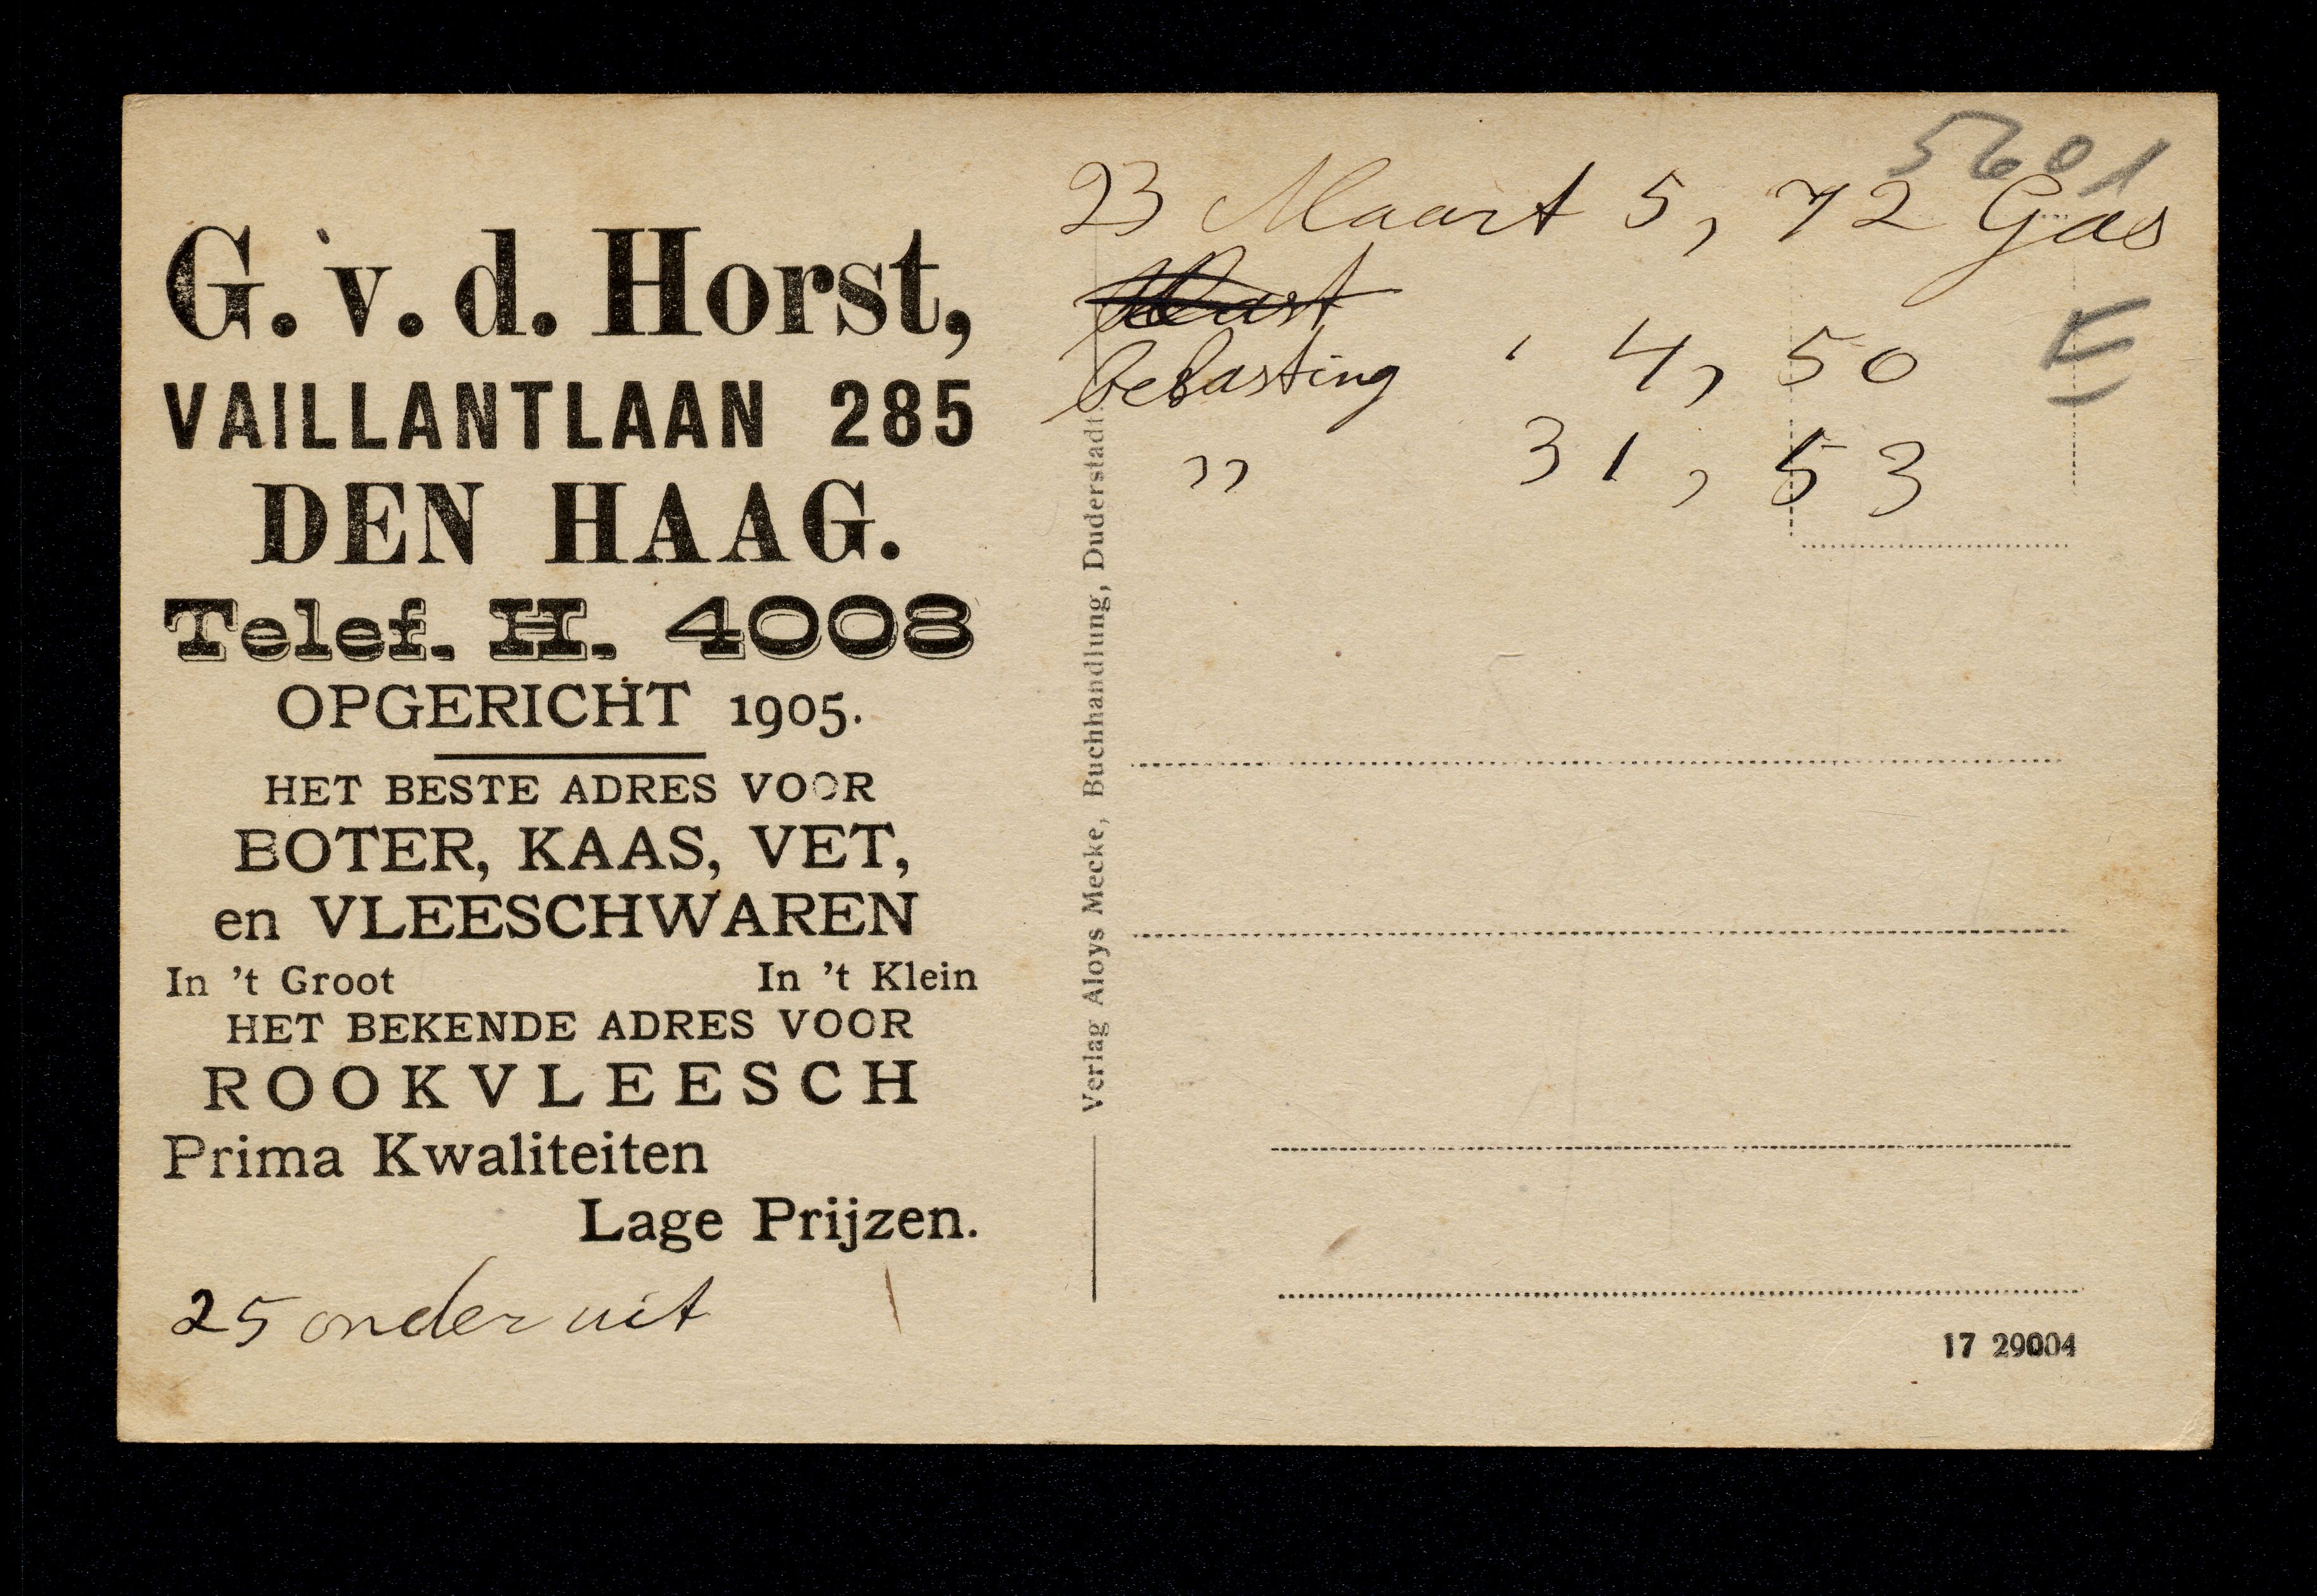 G. v. d. Horst,
VAILLANTLAAN 285
DEN HAAG.
Telef. H. 4008
OPGERICHT 1905.
HET BESTE ADRES VOOR
BOTER, KAAS, VET,
en VLEESCHWAREN
In 't Groot In 't Klein
HET BEKENDE ADRES VOOR
ROOKVLEESCH
Prima Kwaliteiten
Lage Prijzen.
25 onder uit
Verlag Aloys Mecke, Buchhandlung, Duderstadt.
5601
23 Maart 5,72 Gas
belasting 4,50
" 31,53
17 29004